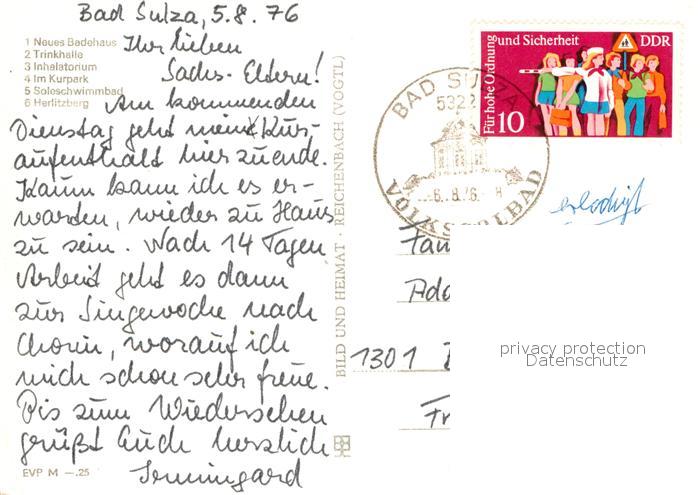 Bad Sulza, 5.8.76
1 Neues Badehaus
2 Trinkhalle
3 Inhalatorium
4 Im Kurpark
5 Soleschwimmbad
6 Herlitzberg
Ihr lieben
Sachs-Eltern!
Am kommenden
Dienstag geht mein Kur-
aufenthalt hier zuende.
Kaum kann ich es er-
warden, wieder zu Haus
zu sein. Nach 14 Tagen
Arbeit geht es dann
zur Singewoche nach
Chorin, worauf ich
mich schon sehr freue.
Bis zum Wiedersehen
grüßt Euch herzlich
Irmingard
EVP M —.25
BILD UND HEIMAT · REICHENBACH (VOGTL)
Für hohe Ordnung und Sicherheit
DDR
10
BAD SULZA
5322
VOLKSSOLBAD
erledigt
Fam
1301
Fr
privacy protection
Datenschutz